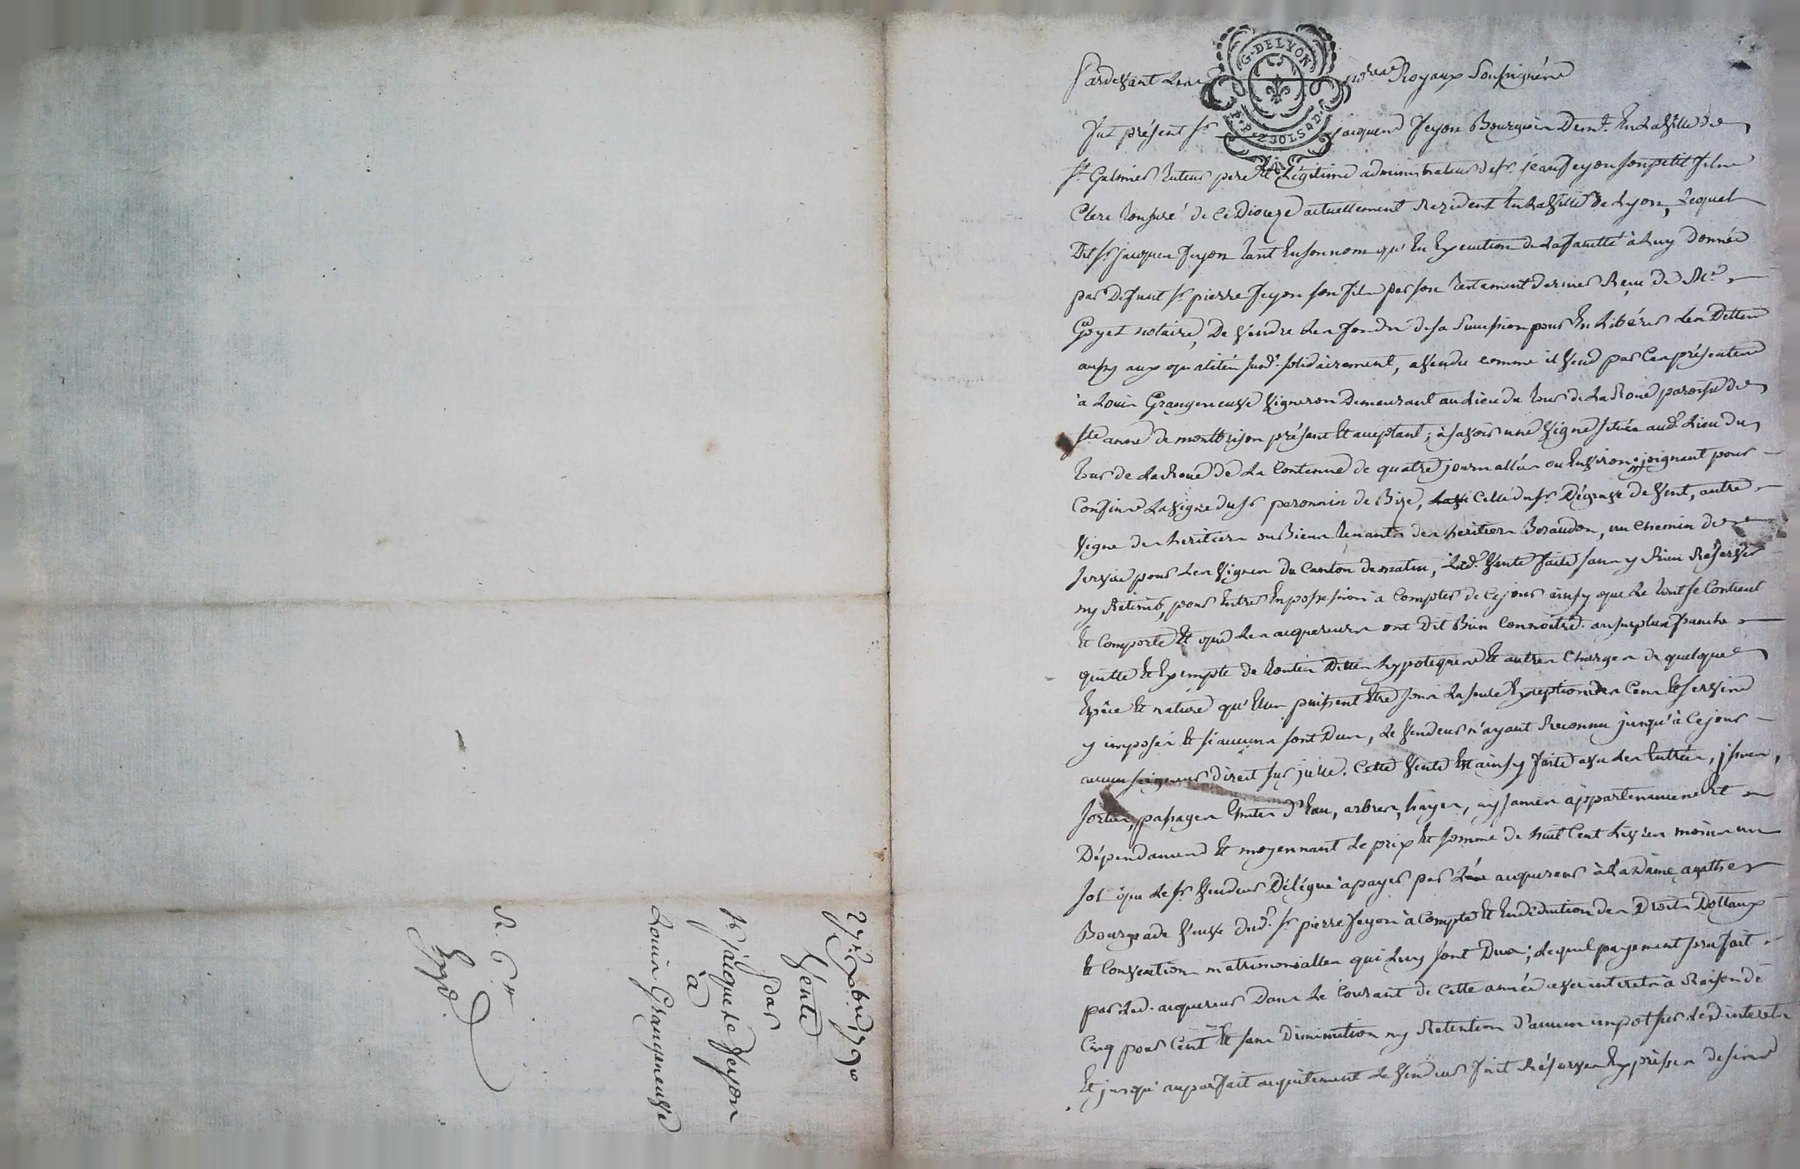 Pardevant Les notres Royaux Soussignés
G. DE LYON
P. P. 2 SOLS 4 D.
Fut présent sr jacques Feyon Bourgeois Demt. En La Ville de
st Galmier tuteur pere Et Légitime administrateur de sr. jean Feyon son petit fils
Clerc tonsuré de Ce Dioceze actuellement Rezident En La Ville de Lyon, Lequel
Dit sr jacques Feyon tant En son nom qu'En Execution de La faculté à Luy donnée
par Defunt sr pierre Feyon son fils par son testament dernier Reçu de Me
Goyet notaire, De Vendre Les fonds de sa Succession pour En Libérer Les Dettes
ainsy aux qualités susd. solidairement, a Vendu comme il Vend par Ces présentes
à Louis Grangeneuve Vigneron Demeurant au Lieu du tour de La Roüe paroisse de
ste anne de montbrison présent Et acceptant; à sçavoir une Vigne située aud. Lieu du
tour de La Roüe de La Contenue de quatre journallées ou Environ, joignant pour
Confins La Vigne du sr peronnin de Bize, Celle du sr Dégraix de Vent, autre
Vigne des heritiers ou Biens tenants des heritiers Boraudon, un Chemin de
service pour Les Vignes du Canton de matin; Lad. Vente faite sans y Rien Réserver
ny Retenir, pour Entrer En possession à Compter de Ce jour ainsy que Le tout se Contient
Et Comporte Et que Les acquereurs ont Dit Bien Connoitre. au surplus franche
quitte Et Exempte de toutes Dettes hypoteques Et autres Charges de quelque
Espéce Et nature qu'Elles puissent Etre sous La seule Exception des Cens Et servis
y imposés Et si aucuns sont Dus, Le Vendeur n'ayant Reconnu jusqu'à Ce jour
aucun seigneur direct sur jcelle. Cette Vente Est ainsy faite avec Les Entrées, jssues,
sorties, passages Chutes d'Eau, arbres, hayes, aysances appartenances Et
Dépendances Et moyennant Le prix Et somme de huit Cent Livres moins un
sol que Le sr Vendeur Délégue à payer par Led. acquereur à La Dame agathe
Bourgeade Veuve dud. sr pierre Feyon à Compte Et En déduction des Droits Dottaux
Et Convention matrimonialles qui Luy sont Dus; Lequel payement sera fait
par Led. acquereur Dans Le Courant de Cette année avec intérets à Raison de
Cinq pour Cent Et sans Diminution ny Retention d'aucun impot sur Led. intérets
Et jusqu'au parfait acquitement Le Vendeur fait Réserve Expresse de sine
27. Xbre 1790
Vente
par
sr jacques Feyon
à
Louis Grangeneuve
R 6
Expd.